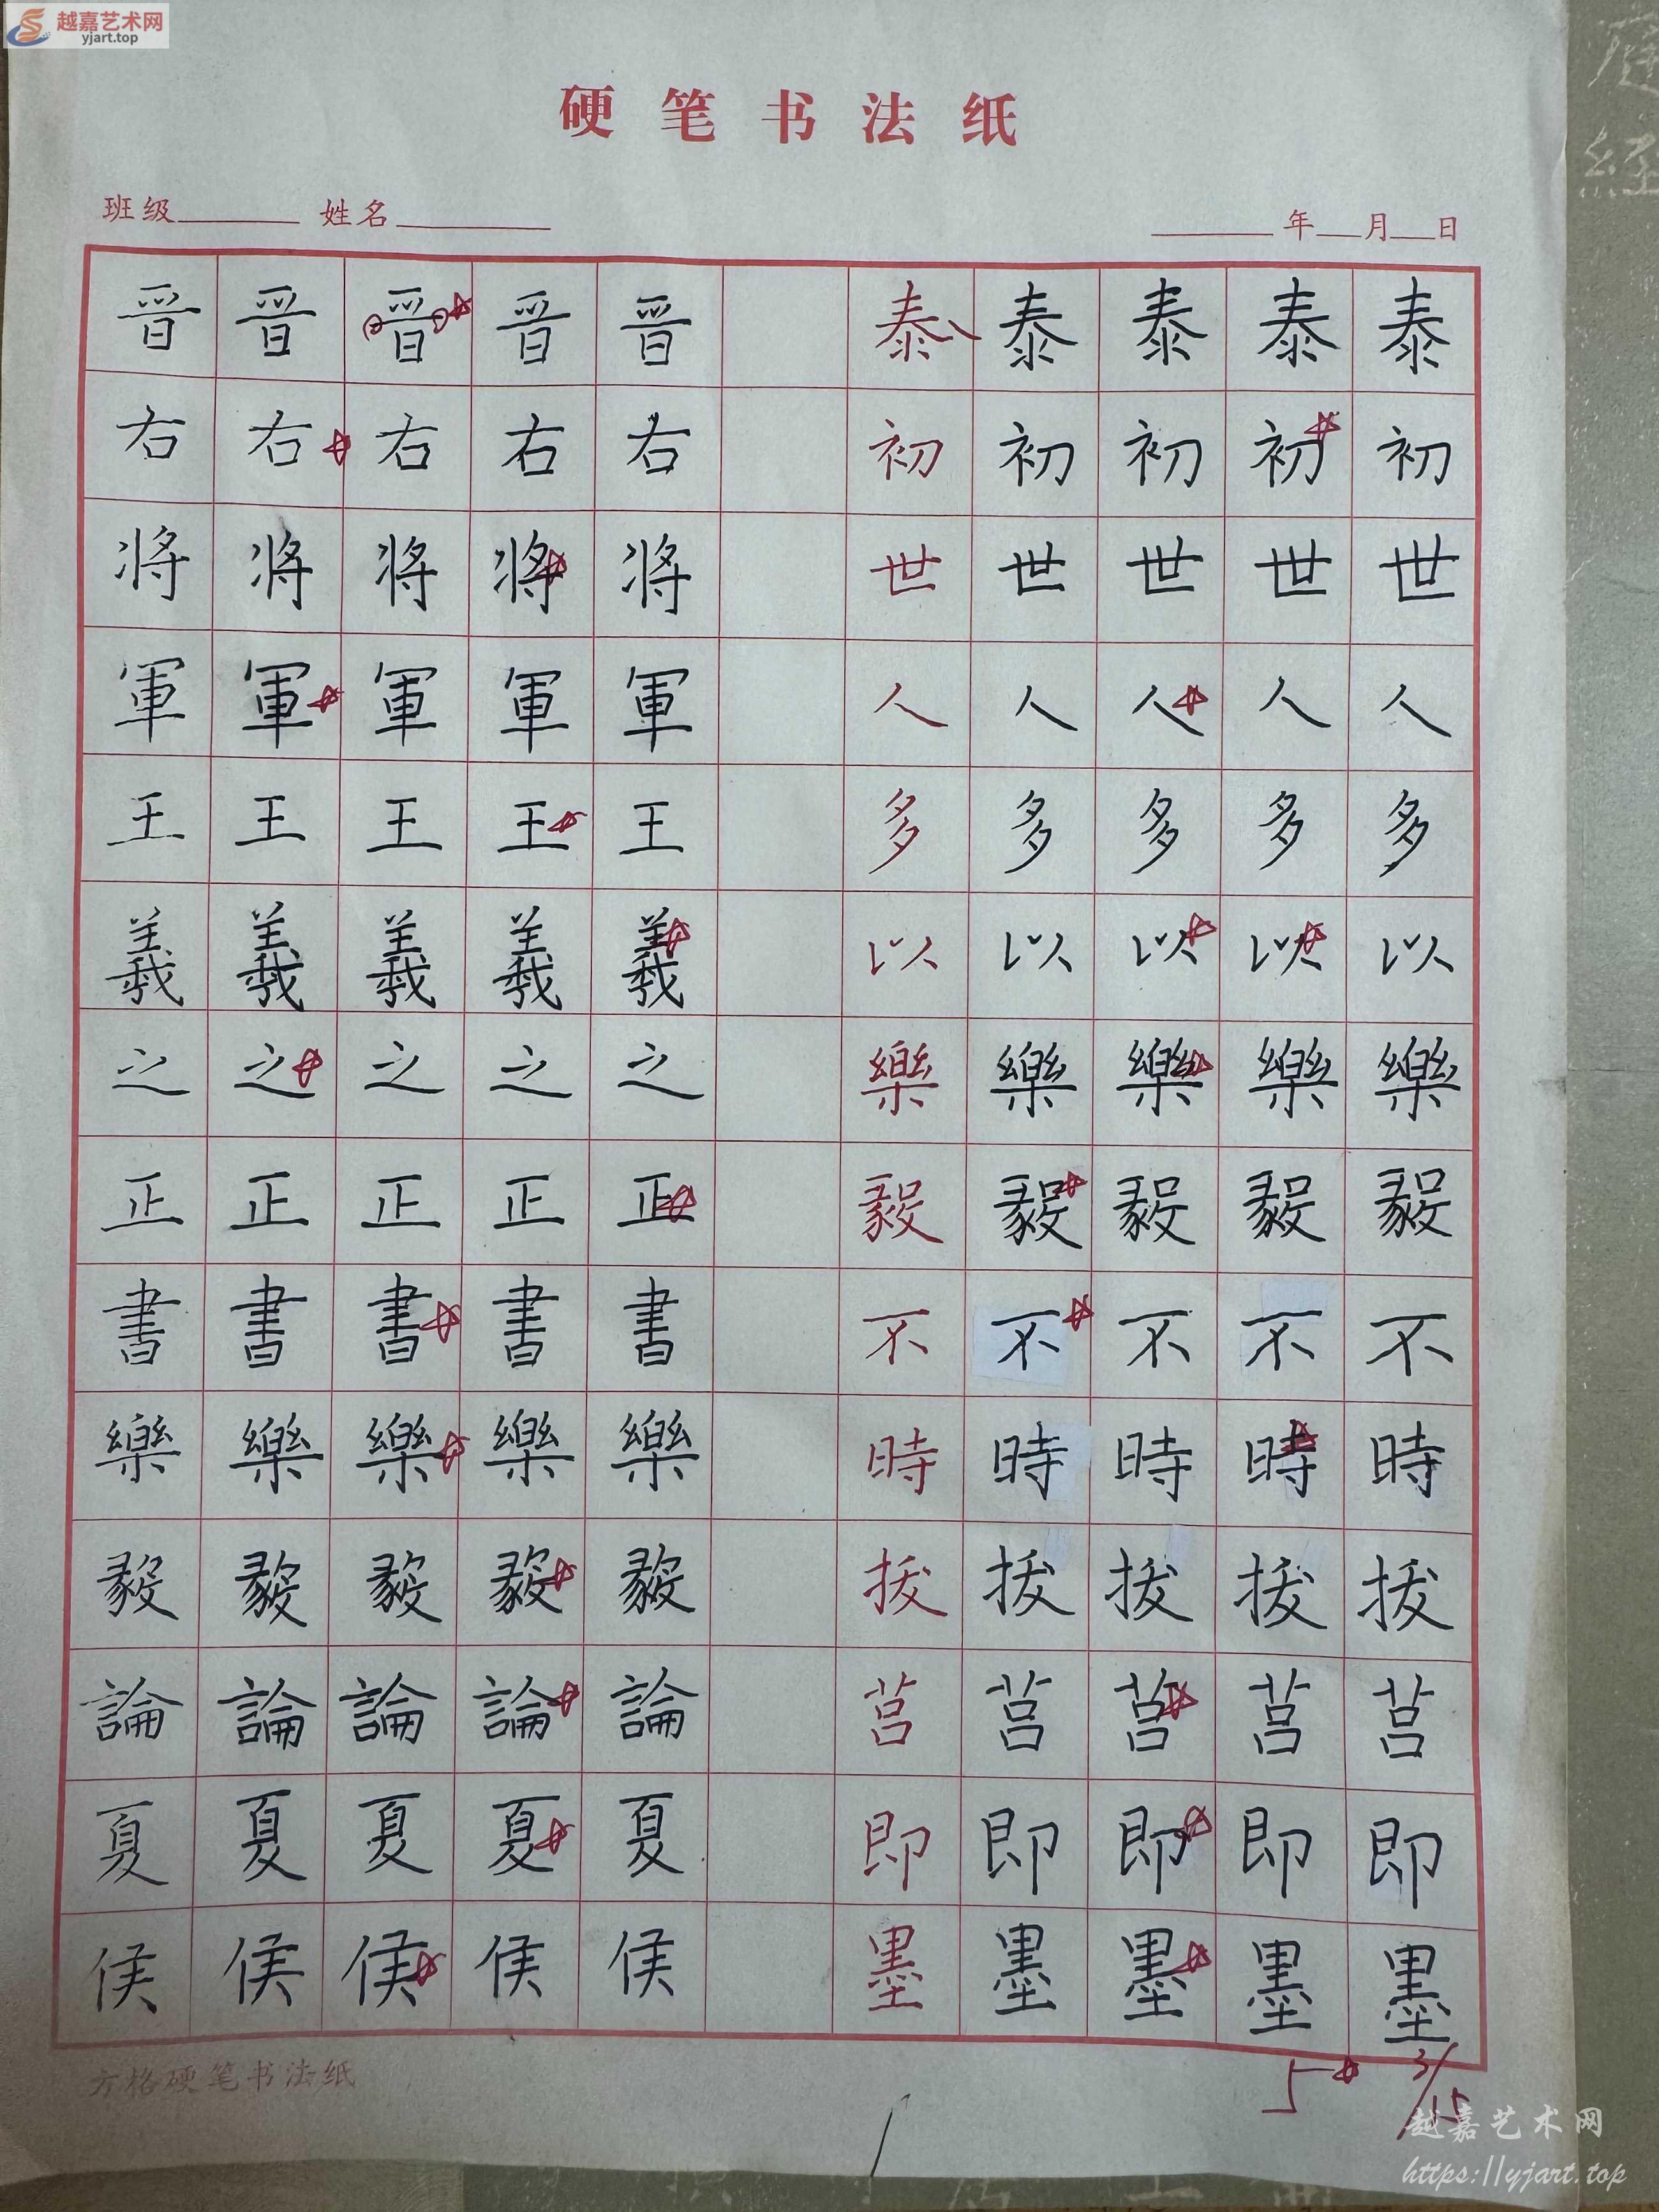 越嘉艺术网
yjart.top
硬笔书法纸
班级 姓名 年 月 日
晋 晋 晋 晋 晋 泰 泰 泰 泰 泰
右 右 右 右 右 初 初 初 初 初
将 将 将 将 将 世 世 世 世 世
軍 軍 軍 軍 軍 人 人 人 人 人
王 王 王 王 王 多 多 多 多 多
羲 羲 羲 羲 羲 以 以 以 以 以
之 之 之 之 之 樂 樂 樂 樂 樂
正 正 正 正 正 毅 毅 毅 毅 毅
書 書 書 書 書 不 不 不 不 不
樂 樂 樂 樂 樂 時 時 時 時 時
毅 毅 毅 毅 毅 拔 拔 拔 拔 拔
論 論 論 論 論 莒 莒 莒 莒 莒
夏 夏 夏 夏 夏 即 即 即 即 即
侯 侯 侯 侯 侯 墨 墨 墨 墨 墨
方格硬笔书法纸
5 3/15
越嘉艺术网
https://yjart.top